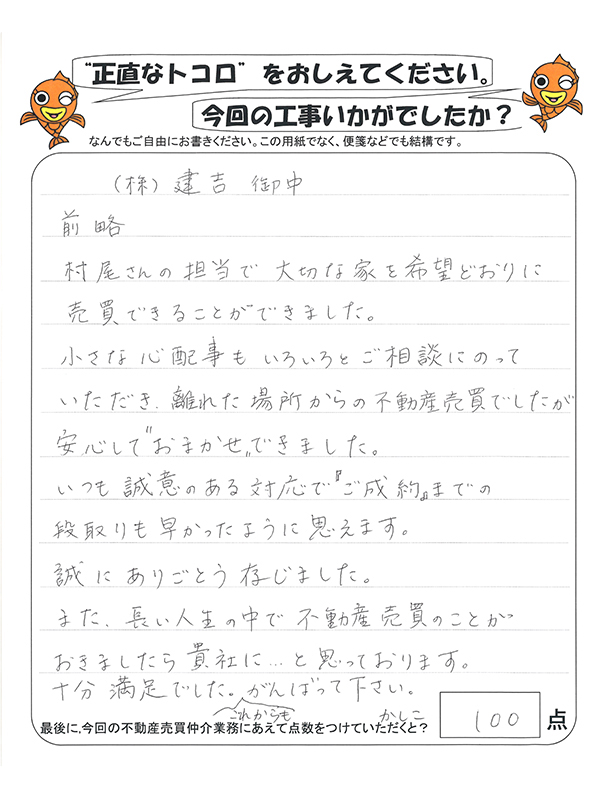 "正直なトコロ" をおしえてください。
今回の工事いかがでしたか?
なんでもご自由にお書きください。この用紙でなく、便箋などでも結構です。
(株)建吉 御中
前略
村尾さんの担当で 大切な家を希望どおりに
売買できることができました。
小さな心配事もいろいろとご相談にのって
いただき、離れた場所からの不動産売買でしたが
安心して"おまかせ"できました。
いつも誠意のある対応で『ご成約』までの
段取りも早かったように思えます。
誠にありごとう存じました。
また、長い人生の中で不動産売買のことが
おきましたら貴社に…と思っております。
十分満足でした。がんばって下さい。
これからも かしこ
最後に、今回の不動産売買仲介業務にあえて点数をつけていただくと? 100 点